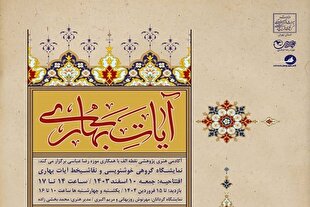 آیات بهاری
آکادمی هنری پژوهشی نقطه الف با همکاری موزه رضا عباسی برگزار می کند:
نمایشگاه گروهی خوشنویسی و نقاشیخط آیات بهاری
افتتاحیه: جمعه ۱۰ اسفند ۱۴۰۳ / ساعت ۱۴ تا ۱۷
بازدید: تا ۱۵ فروردین ۱۴۰۴ / یکشنبه و چهارشنبه ها ساعت ۱۰ تا ۱۶
نمایشگاه گردانان: مهرنوش روزبهانی و مریم اکبری / مدیر هنری: محمد بخشی زاده